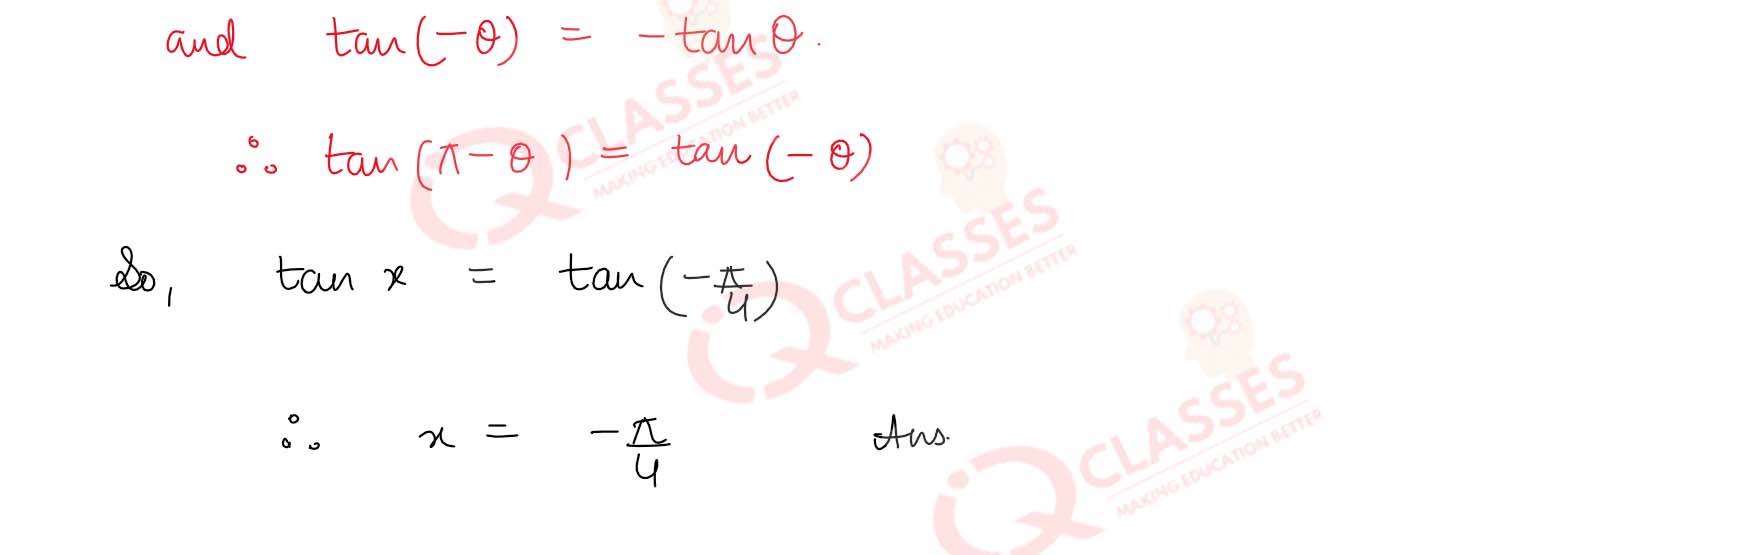 and tan(-θ) = -tanθ.
∴ tan(π-θ) = tan(-θ)
So, tan x = tan(-π/4)
∴ x = -π/4 Ans.
IQ CLASSES
MAKING EDUCATION BETTER
IQ CLASSES
MAKING EDUCATION BETTER
IQ CLASSES
MAKING EDUCATION BETTER